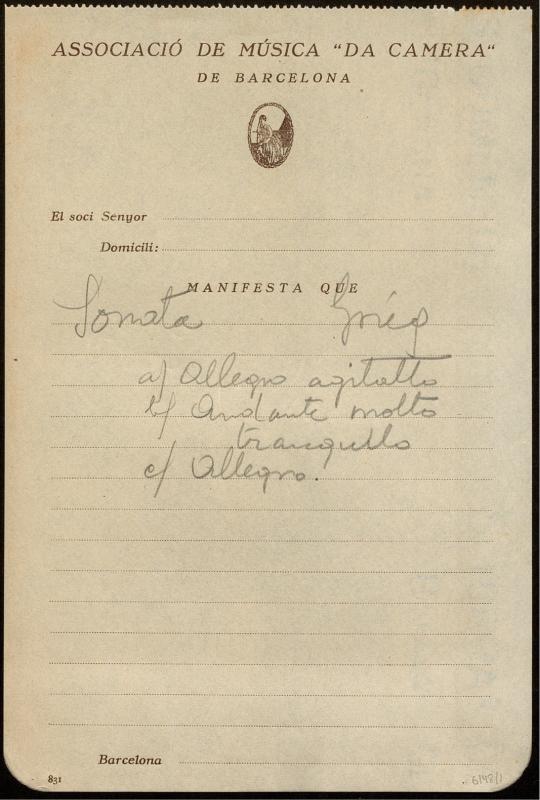 ASSOCIACIÓ DE MÚSICA "DA CAMERA"
DE BARCELONA
El soci Senyor
Domicili:
MANIFESTA QUE
Sonata Griég
a/ Allegro agitatto
b/ Andante molto
tranquillo
c/ Allegro.
Barcelona
831
6148/1